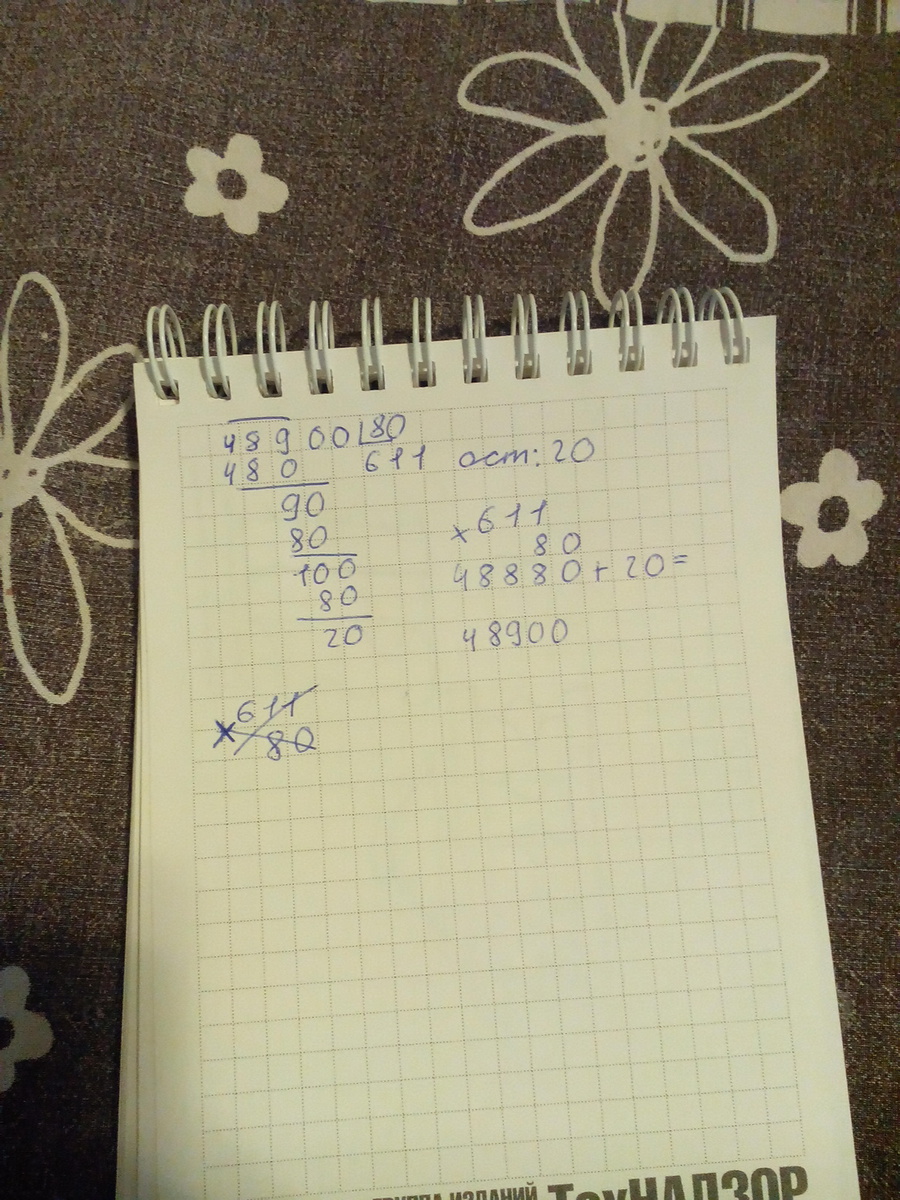 48900 80
480 611 ост: 20
90
80
100
80
20
× 611
80
48880 + 20 =
48900
× 611
80
ГРУППА ИЗДАНИЙ ТехНАДЗОР